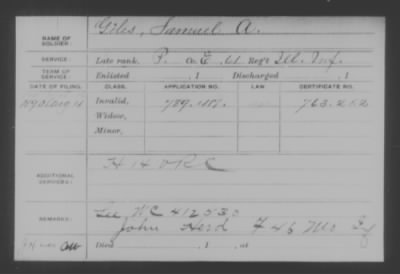 NAME OF SOLDIER: Giles, Samuel A.
SERVICE: Late rank, P. Co. E, 61 Reg't Ill. Inf.
TERM OF SERVICE: Enlisted , 1 Discharged , 1
DATE OF FILING. CLASS. APPLICATION NO. LAW. CERTIFICATE NO.
Invalid, 789.118. 763.262
Widow,
Minor,
ADDITIONAL SERVICES:
REMARKS: See WC 412530
John Herd F 46 Mo
Died , 1 , at